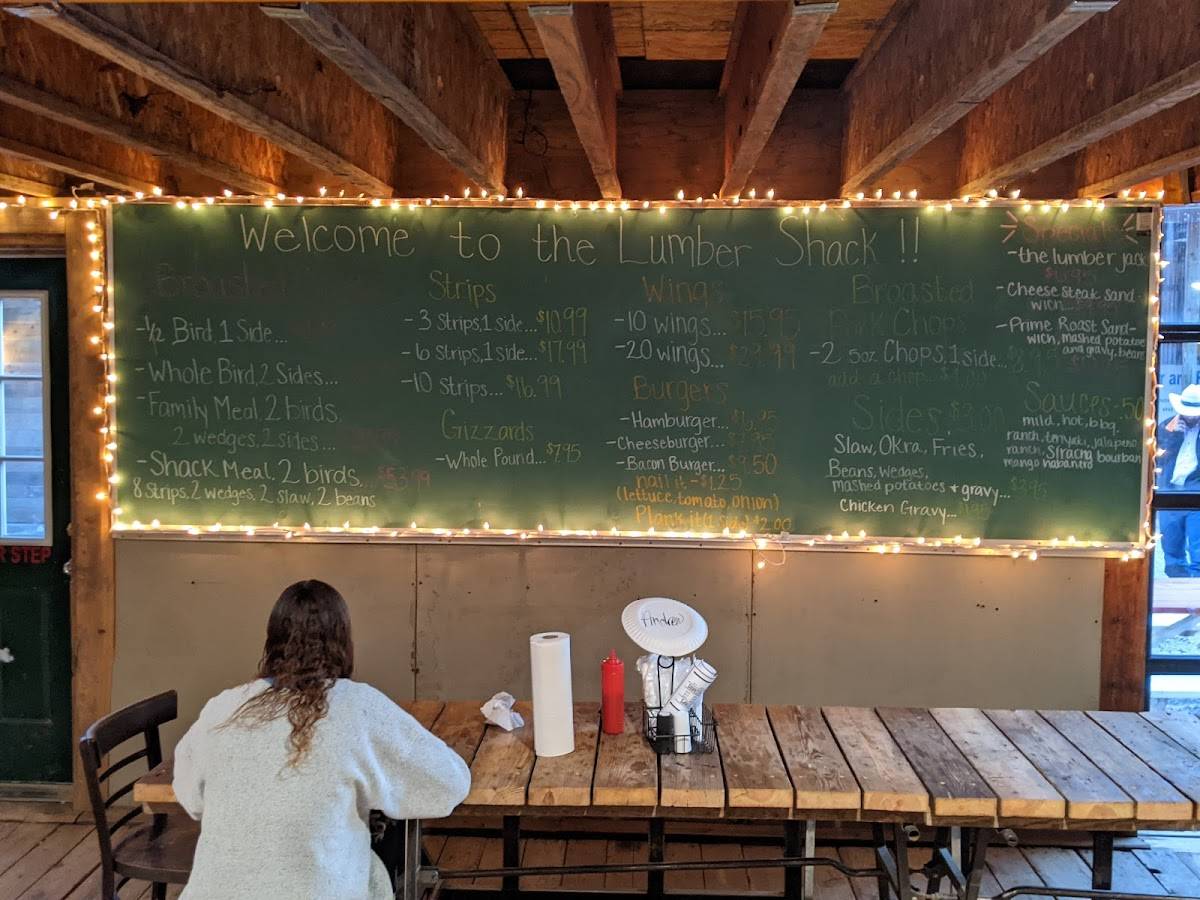 Welcome to the Lumber Shack !!
Broasted
-½ Bird 1 Side...
-Whole Bird, 2 Sides...
-Family Meal, 2 birds,
2 wedges, 2 sides...
-Shack Meal, 2 birds,... $53.99
8 Strips, 2 wedges, 2 slaw, 2 beans
Strips
-3 Strips, 1 side... $10.99
-6 strips, 1 side... $17.99
-10 strips... $16.99
Gizzards
-Whole Pound... $7.95
Wings
-10 wings... $15.95
-20 wings... $29.99
Burgers
-Hamburger... $6.95
-Cheeseburger... $7.95
-Bacon Burger... $9.50
nail it - $1.25
(lettuce, tomato, onion)
Plank it (1 side) $2.00
Broasted
Pork Chops
-2 5oz. Chops, 1 side...
add a chop...
Sides $3.00
Slaw, Okra, Fries,
Beans, wedges,
mashed potatoes + gravy... $3.95
Chicken Gravy...
Special!
-the lumber jack
-Cheese steak sand-
wich...
-Prime Roast Sand-
wich, mashed potatoe
and gravy, beans
Sauces .50
mild, hot, bbq,
ranch, teriyaki, jalapeno
ranch, Siracha bourbon
mango habanero
Andrew
R STEP